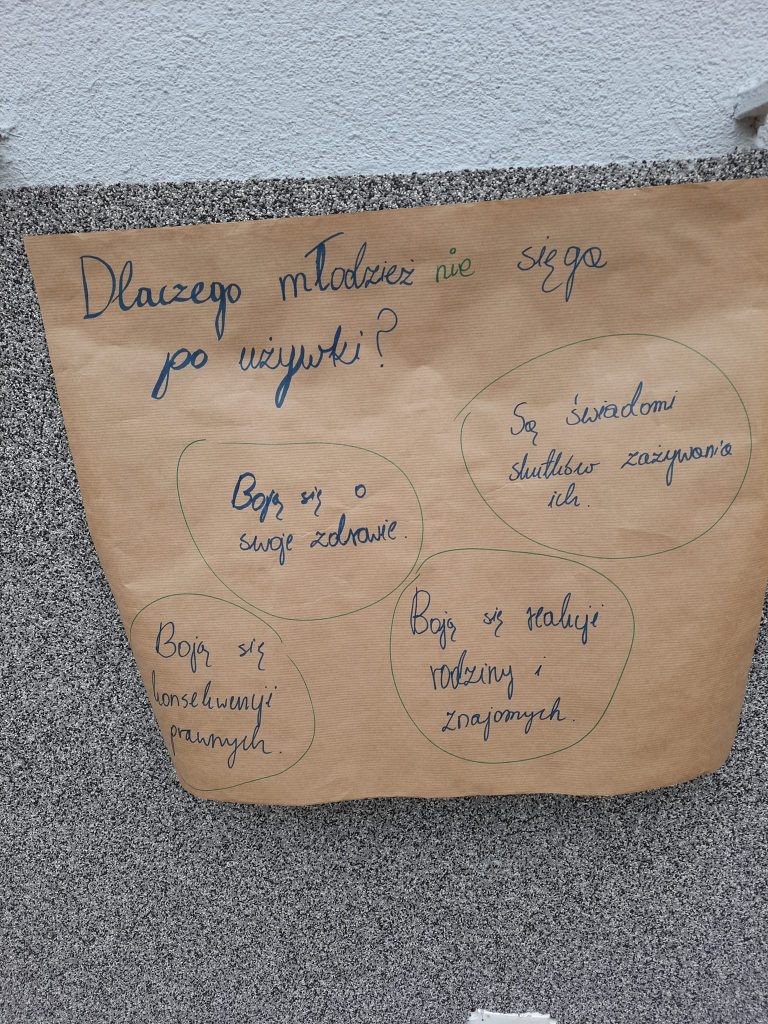 Dlaczego młodzież nie sięga
po używki?
Są świadomi
skutków zażywania
ich.
Boją się o
swoje zdrowie.
Boją się
konsekwencji
prawnych.
Boją się reakcji
rodziny i
znajomych.